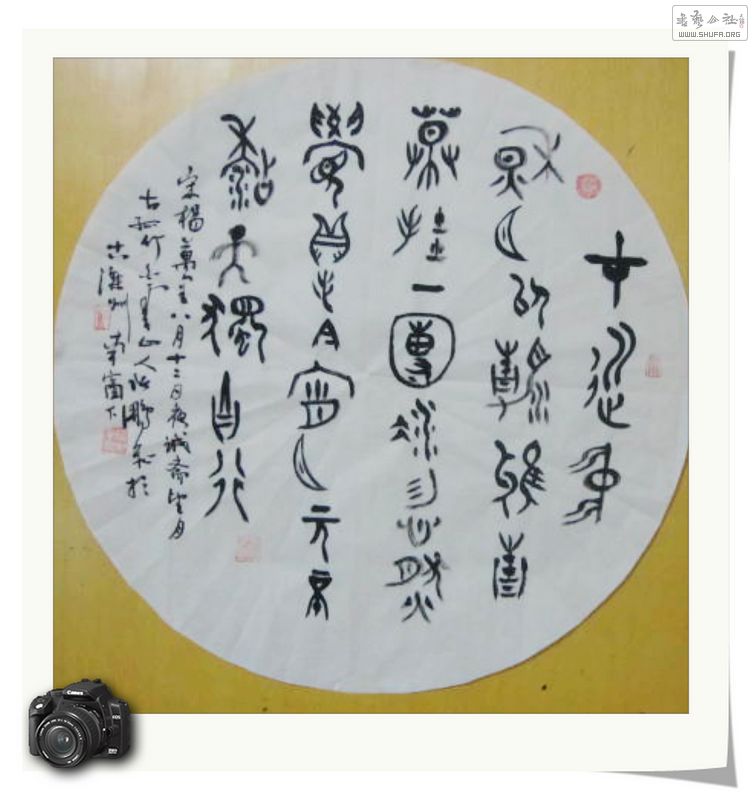 才近中
秋月已清鴉青
幕挂一團冰忽然
覺得今宵月元不
黏天獨自行
宋楊萬里八月十二日夜诚斋望月
古竹山人於
古潍州南窗下
書藝公社
WWW.SHUFA.ORG
Canon
EOS